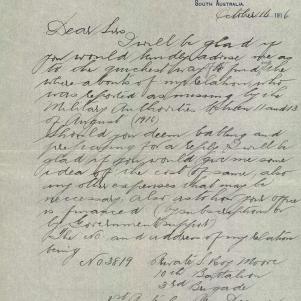 South Australia
October 16 1916
Dear Sirs
I will be glad if
you would kindly advise me as
to the quickest way to find the
whereabouts of my relation who
was reported as missing by the
Military Authorities between 11 and 13
of August (1916)
Should you deem
preparing for a reply I will be
glad if you would give me some
idea of the cost of same, also
any other expenses that may be
necessary. Also as to how your office
is financed (by subscription or
by Government support)
The No. and address of my relation
being
No 3819 Private L Roy Moore
10th Battalion
3rd Brigade